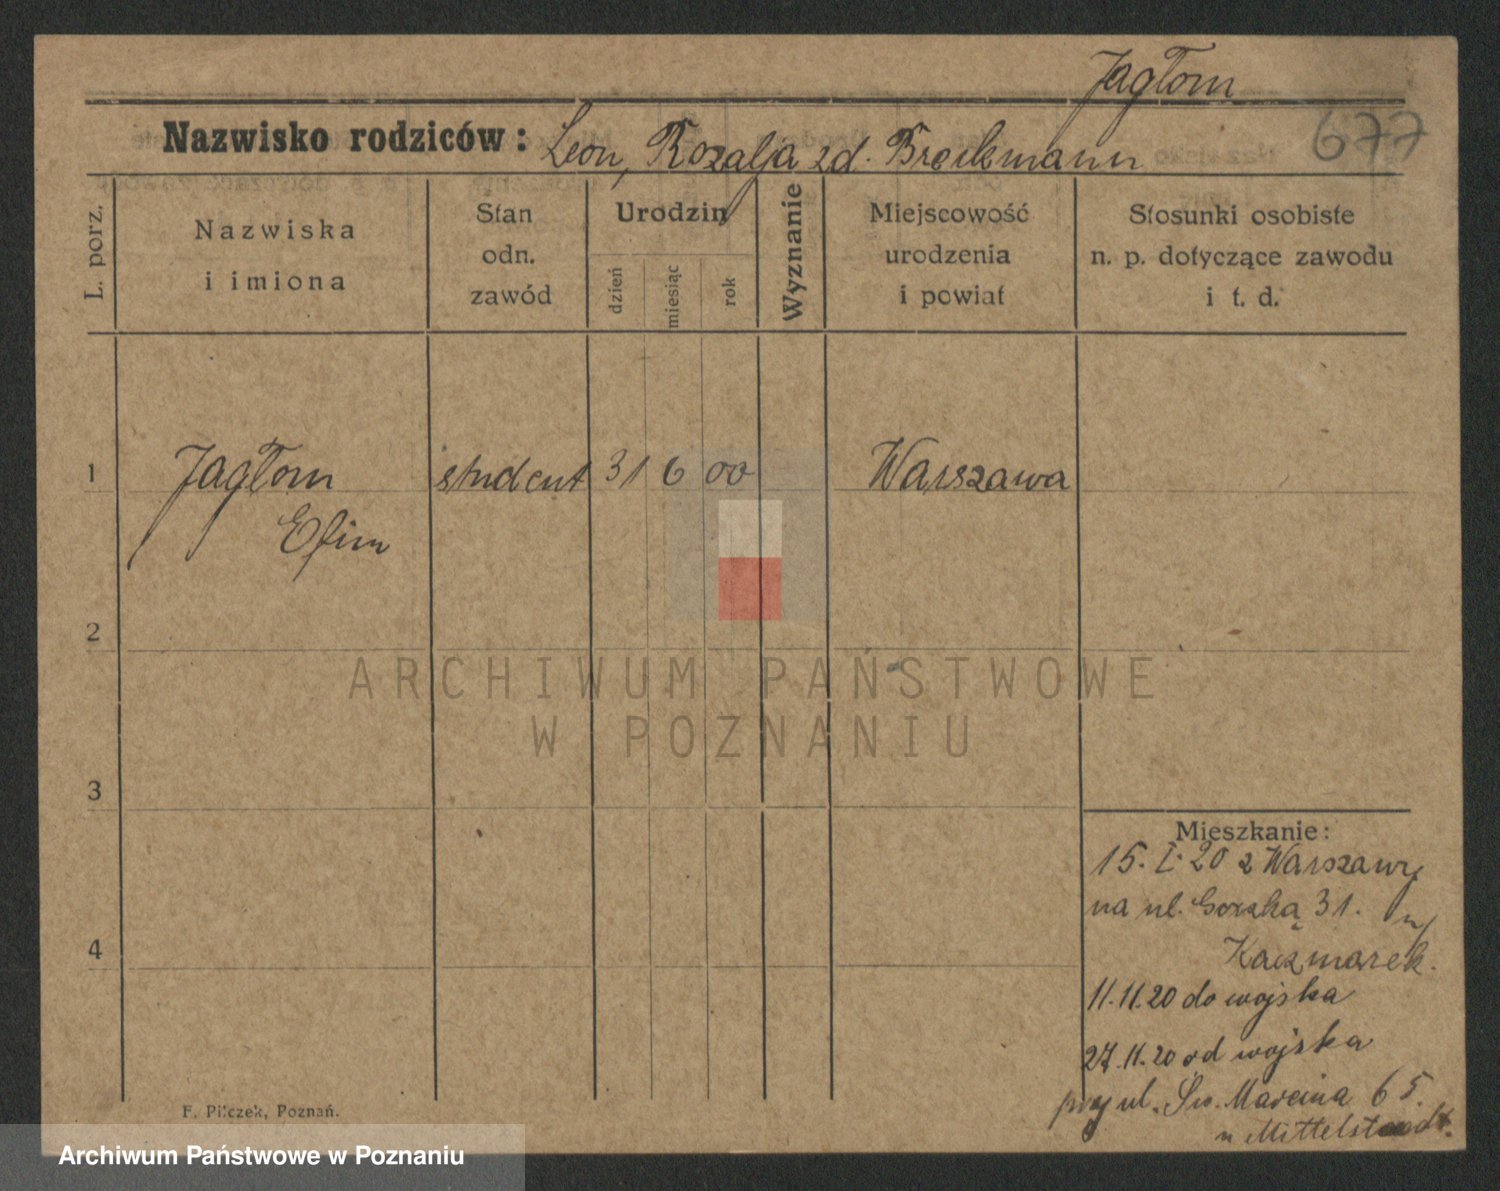 Jagłom
677
Nazwisko rodziców: Leon, Rozalja zd.
L. porz.
Nazwiska
i imiona
Stan
odn.
zawód
Urodzin
dzień
miesiąc
rok
Wyznanie
Miejscowość
urodzenia
i powiat
Stosunki osobiste
n. p. dotyczące zawodu
i t. d.
1 Jagłom student 31 6 00 Warszawa
Efim
2
ARCHIWUM PAŃSTWOWE
W POZNANIU
3
4
Mieszkanie:
15. I. 20 z Warszawy
na ul. Gorską 31. u/
Kaczmarek.
11.11.20 do wojska
27.11.20 od wojska
przy ul. Św. Marcina 65.
u Mittelstaedt.
F. Pilczek, Poznań.
Archiwum Państwowe w Poznaniu